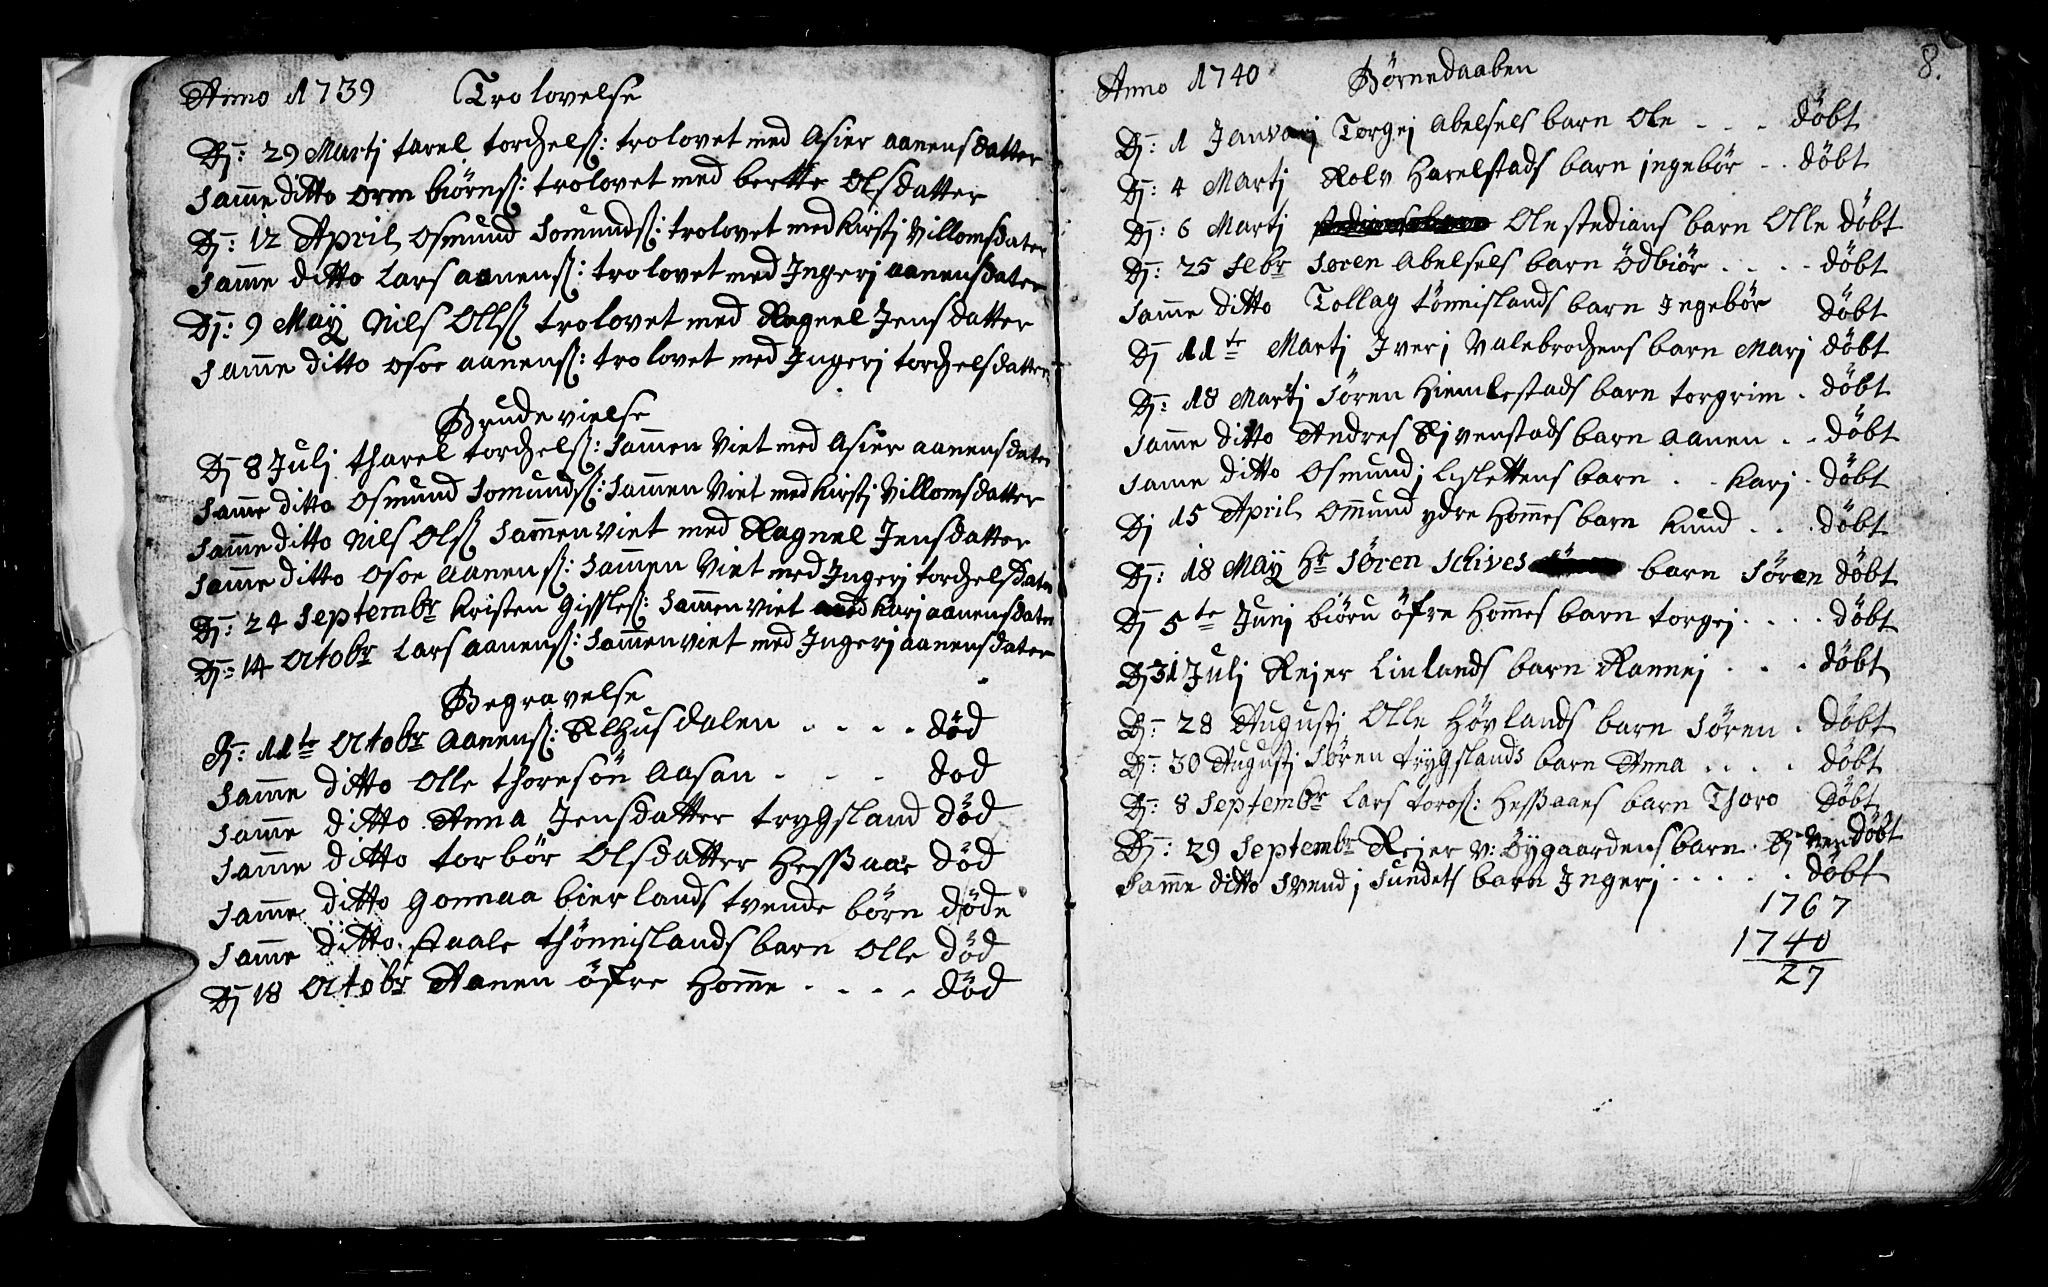 Anno 1739 Trolovelse
Dj: 29 Martj tarel torchelsß: trolovet med Asier aanensdatter
Samme ditto orm biörnsß: trolovet med bertte Olsdatter
Dj: 12 April osmund Somundsß: trolovet med Kirstj Villomsdater
Samme ditto Lars aanensß: trolovet med Jngerj aanensdater
Dj: 9 Maÿ Nils Ollsß trolovet med Ragnel Jensdatter
Samme ditto osoe aanensß: trolovet med Jngerj torchelsdatter
Brudevielse
Dj 8 Julj tharel torchelsß: Sammen Viet med Asier aanensdater
Samme ditto Osmund Somundsß: Sammen Viet med Kirstj Villomsdatter
Samme ditto Nils Olsß Sammen viet med Ragnel Jensdatter
Samme ditto osoe aanensß: Sammen Viet med Jngerj torchelsdater
Dj: 24 Septembr Kristen Gissleß: Sammen viet med Karj aanensdater
Dj: 14 Octobr Lars aanensß: Sammen viet med Jngerj aanensdater
Begravelse
Dj: 11te Octobr Aanensß: Ælhusdalen . . . . död
Samme ditto Olle thoresön Aasan - - - död
Samme ditto Anna Jensdatter trygsland död
Samme ditto torbör Olsdatter Hessaae död
Samme ditto Gonnaa bierlands tvende börn döde
Samme ditto staale thönnislands barn Olle död
Dj 18 Octobr Aanen öfre Homme . . . . död
8.
Anno 1740 Börnedaaben
Dj: 1 Janvarj Torgej Abelsels barn Ole . . . döbt
Dj: 4 Martj Rolv Harelstads barn jngebör . . döbt
Dj: 6 Martj Ole stedians barn Olle döbt
Dj: 25 Febr Søren Abelsels barn Ödbiör . . . . döbt
Samme ditto Tollag tönnislands barn Jngebör döbt
Dj 11te Martj Jver j Valebrochens barn Marj döbt
Dj: 18 Martj Sören Hiemlestads barn torgrim . döbt
Samme ditto Andres Sjvenstads barn aanen . . döbt
Same ditto Osmund j Lislettens barn . . Karj . döbt
Dj 15 April Ommund ydre Hommes barn Knud . . . döbt
Dj: 18 Maÿ Hr Søren Schives barn Sören döbt
Dj 5te Junj biörn öfre Hommes barn torgej . . . . döbt
Dj 31 Julj Rejer Linlands barn Rannej . . . döbt
Dj: 28 Augustj Olle Hövlands barn Sören . döbt
Dj: 30 Augustj Sören trygslands barn Anna . . . . döbt
Dj: 8 Septembr Lars torosß: Hessaaes barn Thoro döbt
Dj: 29 Septembr Rejer v: Öygaardens barn . döbt
Samme ditto Svend j Sundets barn Jngerj . . . . . döbt
1767
1740
27